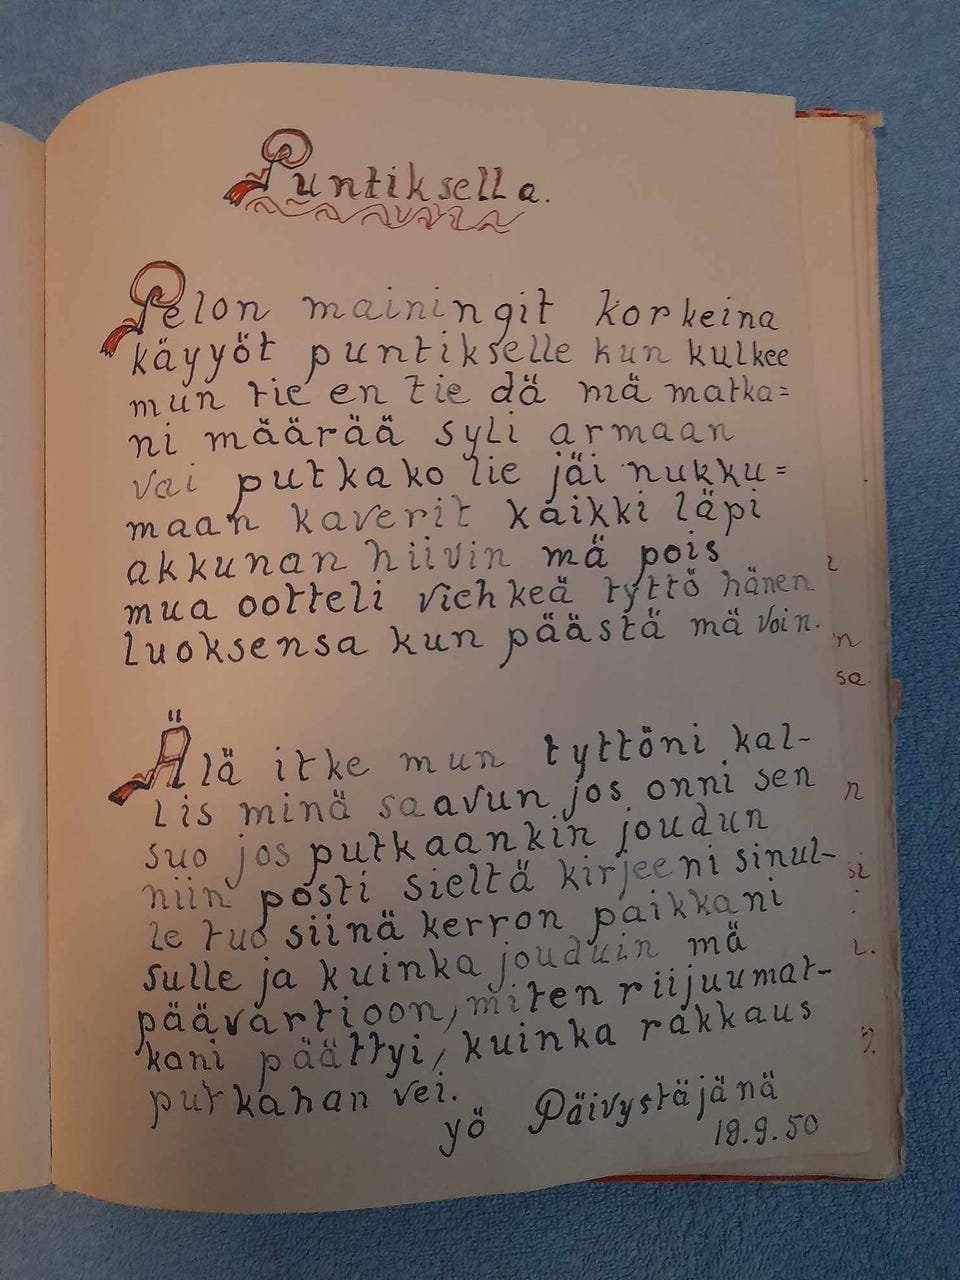 Puntiksella.
Pelon mainingit korkeina
käyyöt puntikselle kun kulkee
mun tie en tie dä mä matka=
ni määrää syli armaan
vai putkako lie jäi nukku=
maan kaverit kaikki läpi
akkunan hiivin mä pois
mua ootteli viehkeä tyttö hänen
luoksensa kun päästä mä voin.
Älä itke mun tyttöni kal-
lis minä saavun jos onni sen
suo jos putkaankin joudun
niin posti sieltä kirjeeni sinul-
le tuo siinä kerron paikkani
sulle ja kuinka jouduin mä
päävartioon, miten riijuumat-
kani päättyi, kuinka rakkaus
putkahan vei.
yö Päivystäjänä
19.9.50
n
sa
n
si